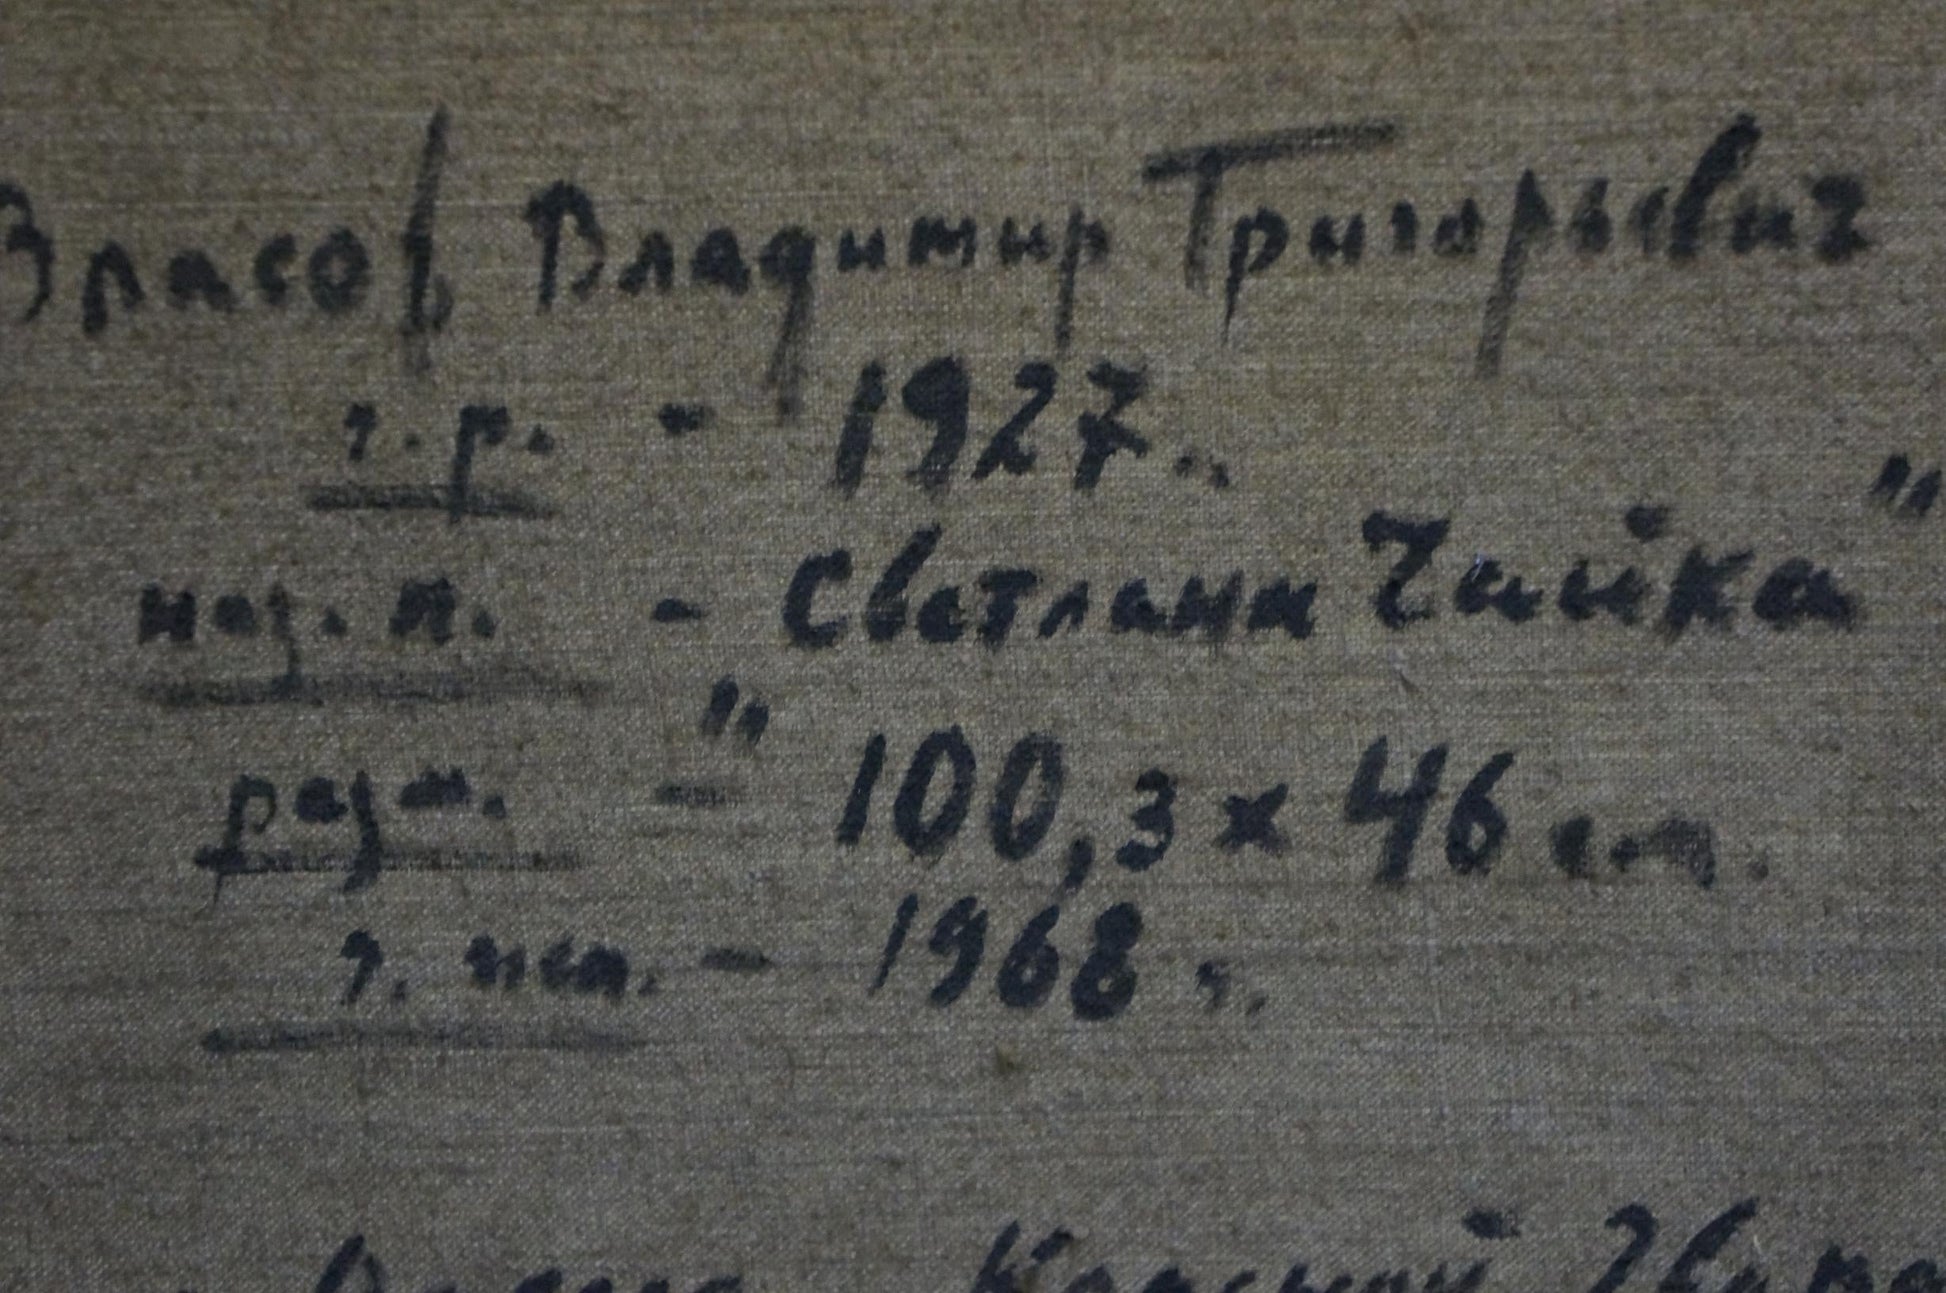 Власов Владимир Григорьевич
г.р. - 1927..
наз. п. - "Светлана Чайка"
разм. - 100,3 х 46 см.
г. исп. - 1968 г.
Красный